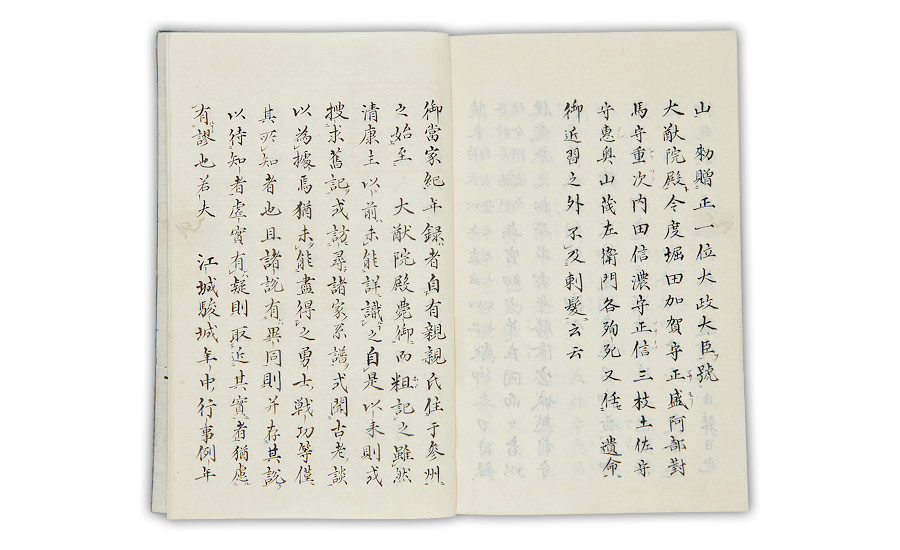 山 勅贈正一位大政大臣號
大猷院殿今度堀田加賀守正盛阿部對
馬守重次内田信濃守正信三枝土佐守
守惠奥山茂左衛門各殉死又任 遺命
御近習之外不及剃髪云云
御當家紀年録者自有親親氏住于參州
之始至 大猷院殿薨御而粗記之雖然
清康主以前未能詳識之自是以来則或
搜求舊記或訪尋諸家系譜或聞古老談
以為據焉猶未能盡得之勇士戦功等僅
其所知者也且諸説有異同則并存其説
以待知者虚實有疑則取近其實者猶慮
有謬也若夫 江城駿城年中行事例年